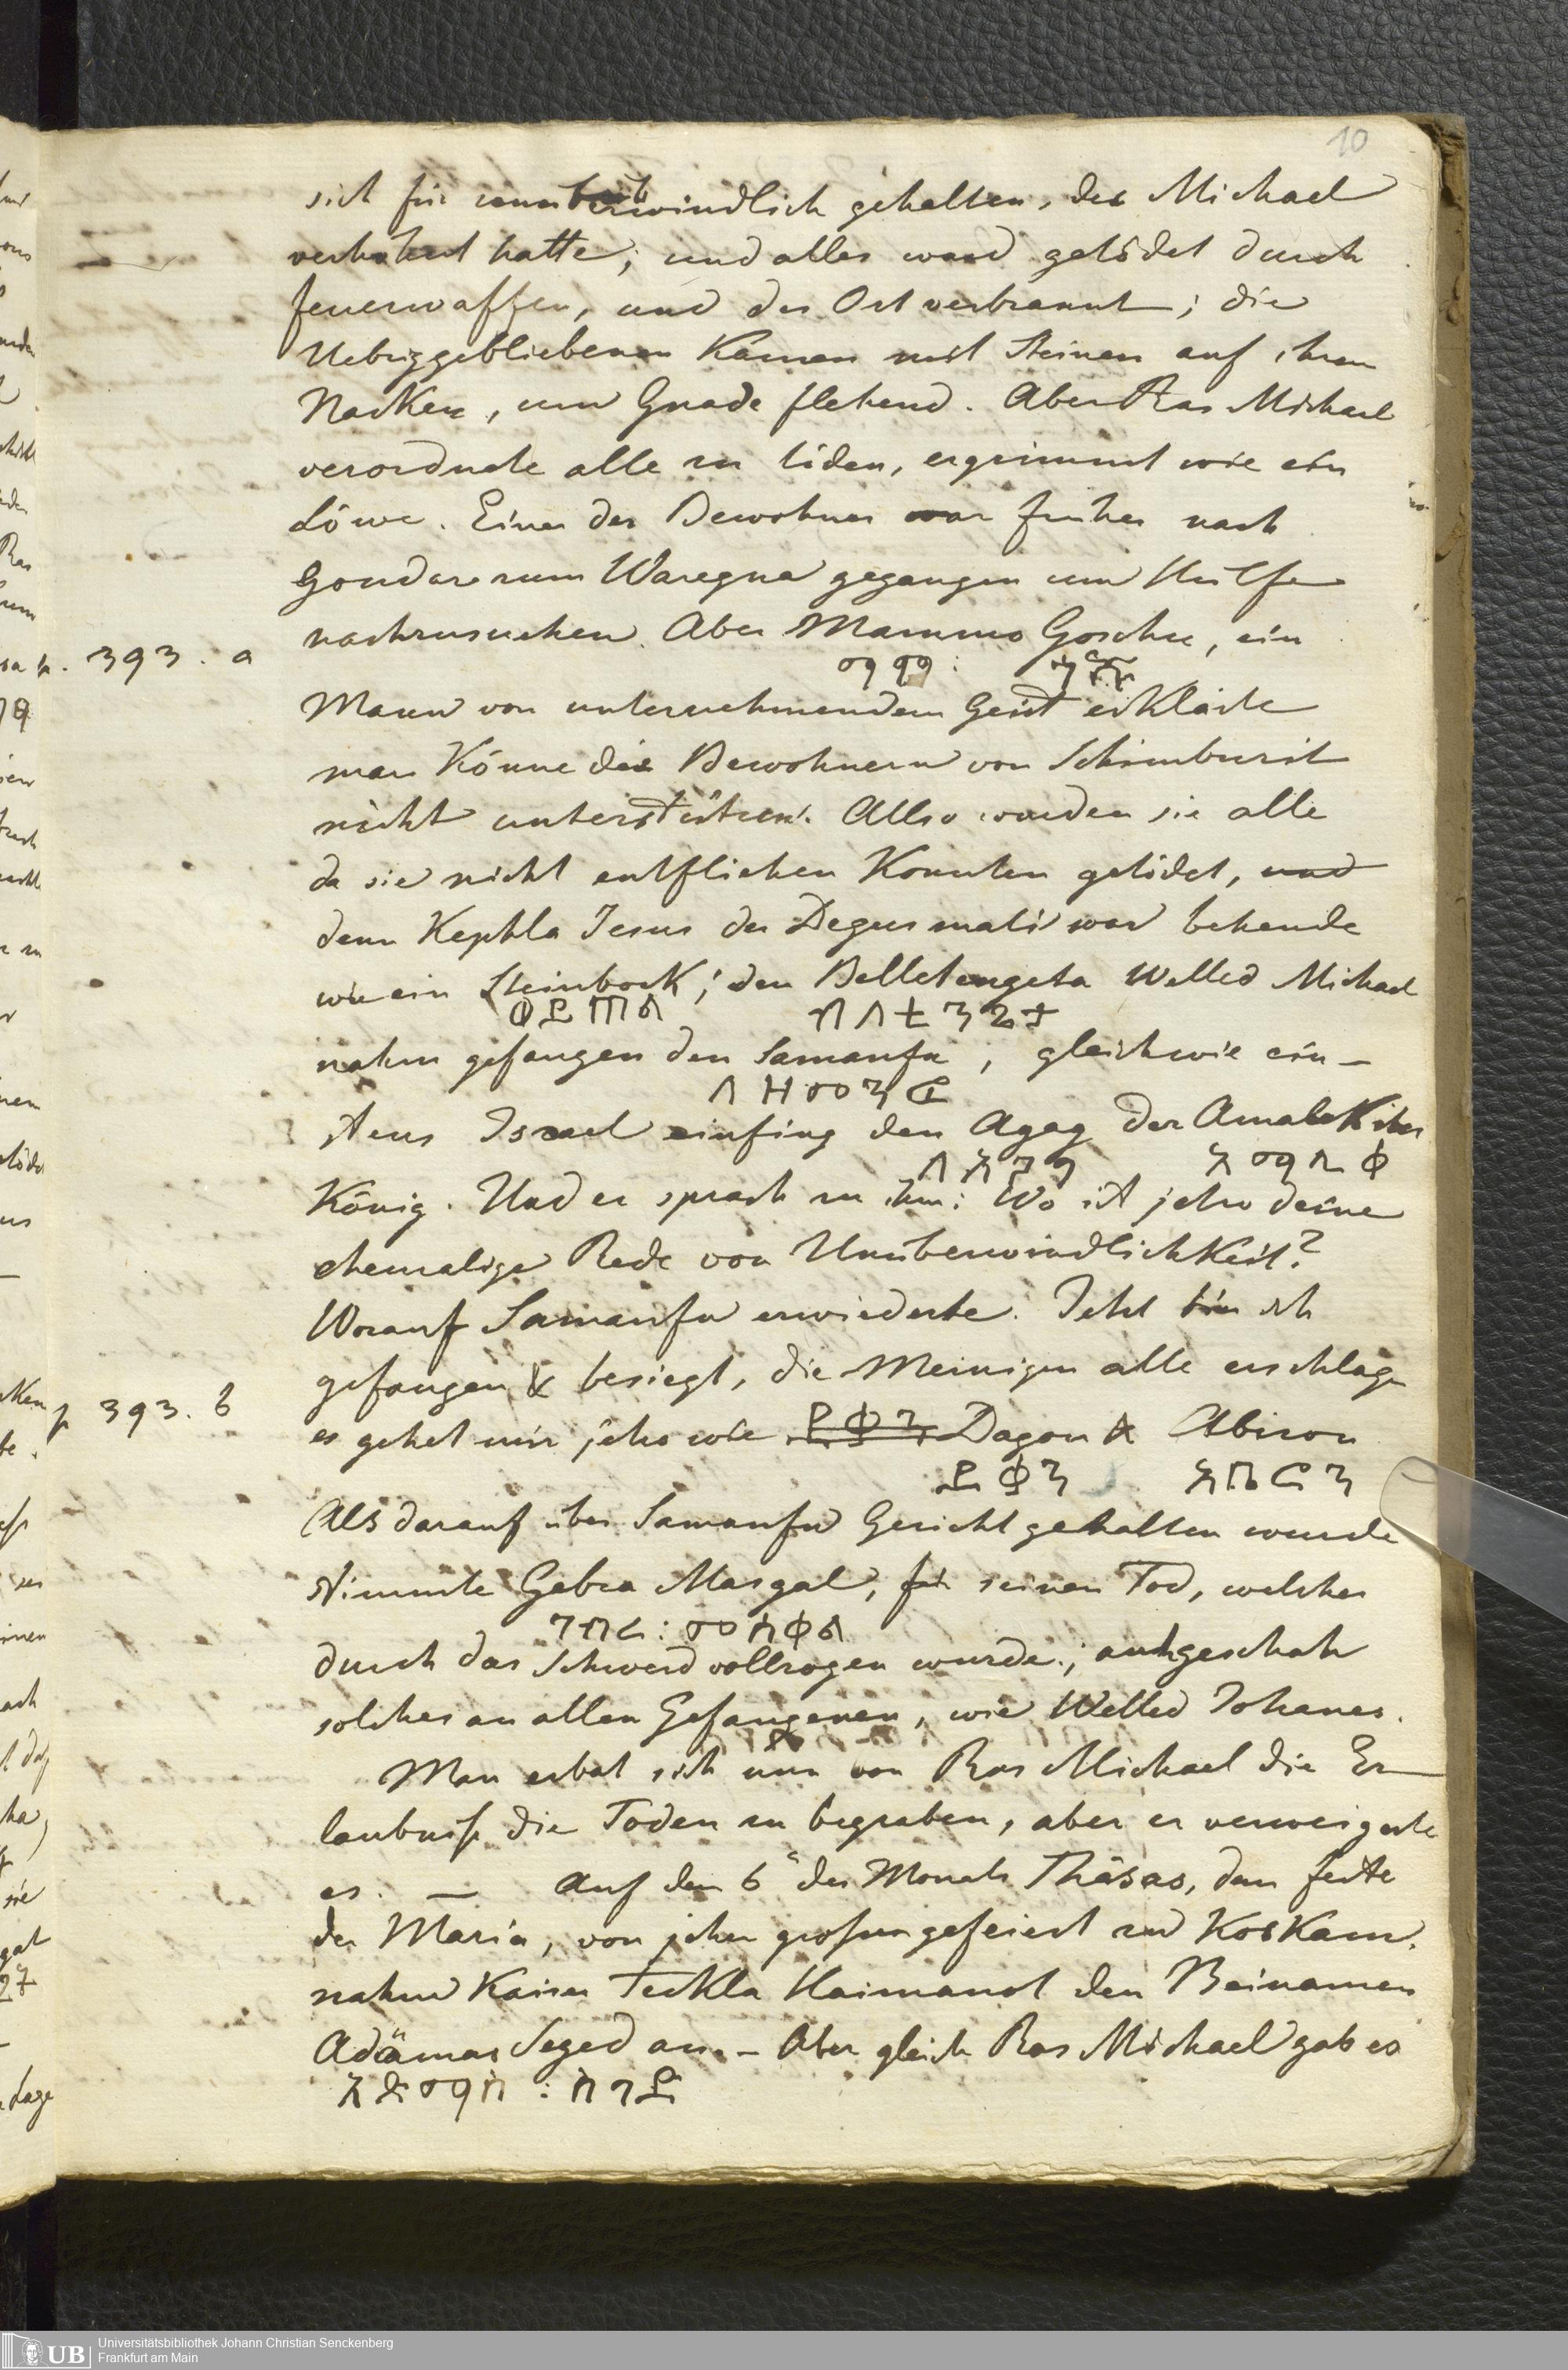 10
sich für unüberwindlich gehalten, der Michael
verhöhnt hatte; und alles ward getödet durch
feuerwaffen, und der Ort verbrannt; die
Uebriggebliebenen Kamen mit Steinen auf ihren
Nacken, um Gnade flehend. Aber Ras Michael
verordnete alle zu töden, ergrimmt wie ein
Löwe. Einer der Bewohner war früher nach
Gondar zum Waregna gegangen um Hülfe
nachzusuchen. Aber Mammo Goschu, ein
p. 393. a
ማሞ: ጎሹ
Mann von unternehmendem Geist erklärte
man Könne die Bewohnern von Schimburit
nicht unterstützen. Also wurden sie alle
da sie nicht entfliehen Konnten getödet, und
denn Kephla Jesus der Degusmati war behende
wie ein Steinbock; den Belletengeta Welled Michael
ወይጠል በላቴንጌታ
nahm gefangen den Samanfu, gleichwie ein-
ለዘመንፉ
stens Israel einfing den Agag der Amalekiter
ለአጋግ አማሌቅ
König. Und er sprach zu ihm: Wo ist jetzo deine
ehemalige Rede von Unüberwindlichkeit?
Worauf Samanfu erwiederte. Jetzt bin ich
gefangen & besiegt, die Meinigen alle erschlagen
p 393. b
es gehet mir jetzo wie ዳቆን Dagon & Abiron
ዳቆን አቤሮን
Als darauf über Samanfu Gericht gehalten wurde
stimmte Gebra Masgal, für seinen Tod, welcher
ገብረ: መስቀል
durch das Schwerd vollzogen wurde; auch geschah
solches an allen Gefangenen, wie Welled Johanes.
Man erbat sich nun von Ras Michael die Er-
laubniß die Toden zu begraben, aber er verweigerte
es. — Auf den 6ᵗ des Monats Thäsas, dem feste
der Maria, von jeher gefeiert zu Koskam,
nahm Kaiser Teckla Haimanot den Beinamen
Adämas Seged an. – Ober gleich Ras Michael gab es
አድማስ : ሰገድ
UB Universitätsbibliothek Johann Christian Senckenberg
Frankfurt am Main